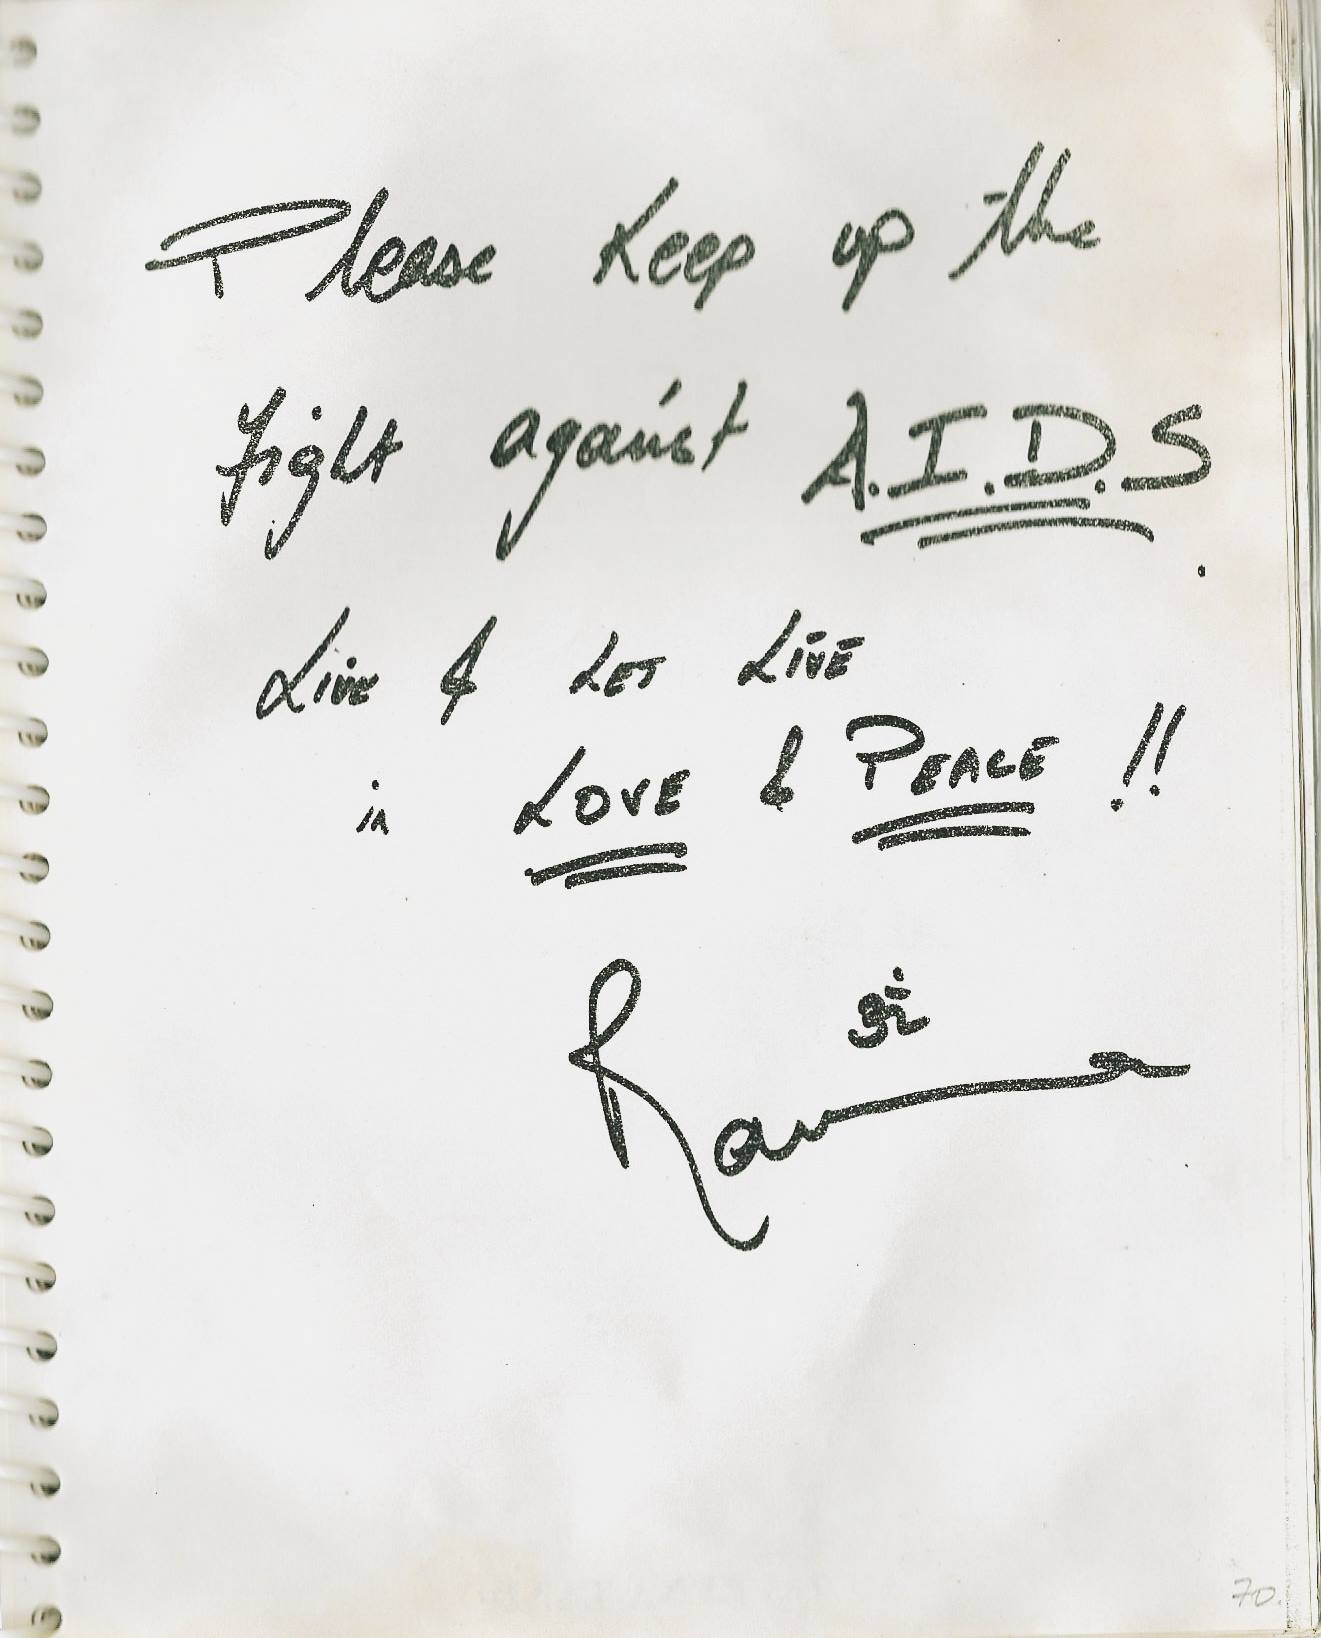 Please Keep up the
fight against A.I.D.S.
Live & LET LIVE
in LOVE & PEACE !!
70.